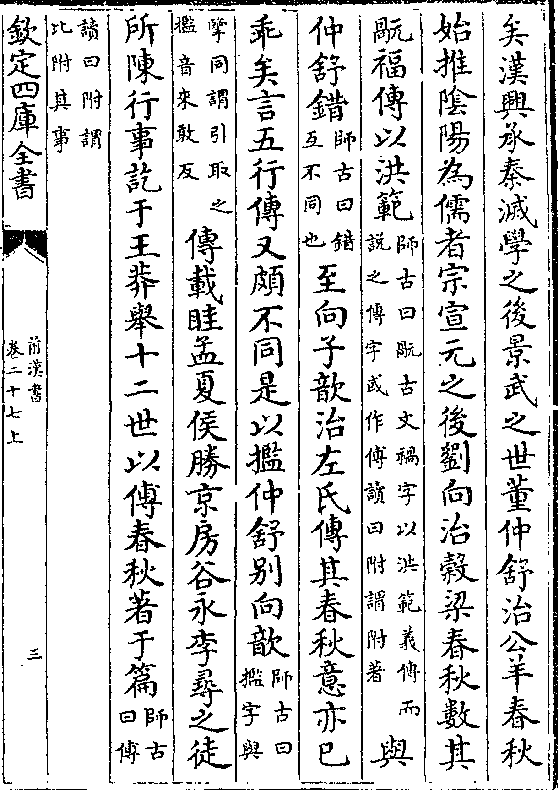 矣漢興承秦滅學之後景武之世董仲舒治公羊春秋
始推隂陽為儒者宗宣元之後劉向治榖梁春秋數其
旤福傳以洪範師古曰旤古文禍字以洪範義傳而說之傳字或作傅讀曰附謂附著與
仲舒錯師古曰錯互不同也至向子歆治左氏傳其春秋意亦已
乖矣言五行傳又頗不同是以㩜仲舒别向歆師古曰㩜字與
擥同謂引取之㩜音來敢反傳載眭孟夏侯勝京房谷永李尋之徒
所陳行事訖于王莽舉十二世以傅春秋著于篇師古曰傅
讀曰附謂比附其事
欽定四庫全書
前漢書
卷二十七上
三